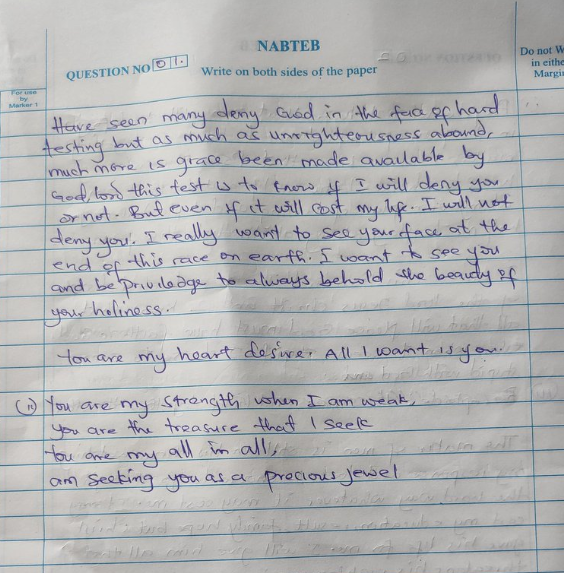 NABTEB
QUESTION NO 01.
Write on both sides of the paper
Do not W
in eithe
Margi
For use
by
Marker 1
Have seen many deny God in the face of hard
testing but as much as unrighteousness abound,
much more is grace been made available by
God, lord this test is to know if I will deny you
or not. But even if it will cost my life. I will not
deny you. I really want to see your face at the
end of this race on earth. I want to see you
and be priviledge to always behold the beauty of
your holiness.
You are my heart desire. All I want is you.
(ii) You are my strength when I am weak,
you are the treasure that I seek
You are my all in all,
am seeking you as a precious jewel